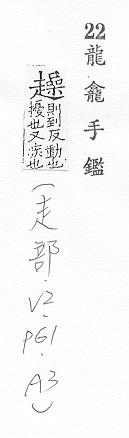 22龍龕手鑑
趮則到反動也
擾也又疾也
(走部.V2.P61.A3)